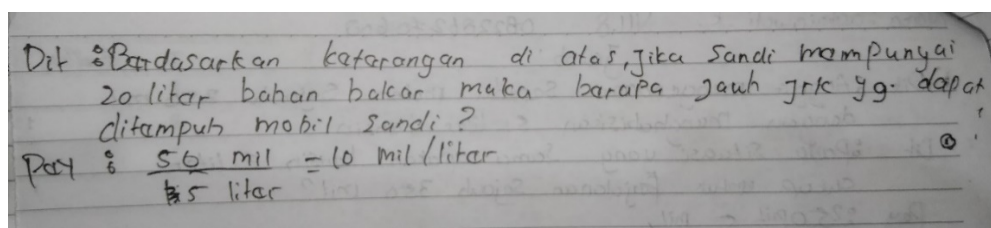 Dit : Berdasarkan katarangan di atas, Jika Sandi mempunyai
20 litar bahan bakar maka barapa Jauh Jrk yg. dapat
ditampuh mobil Sandi?
Pay : 50 mil = 10 mil/litar
5 litar